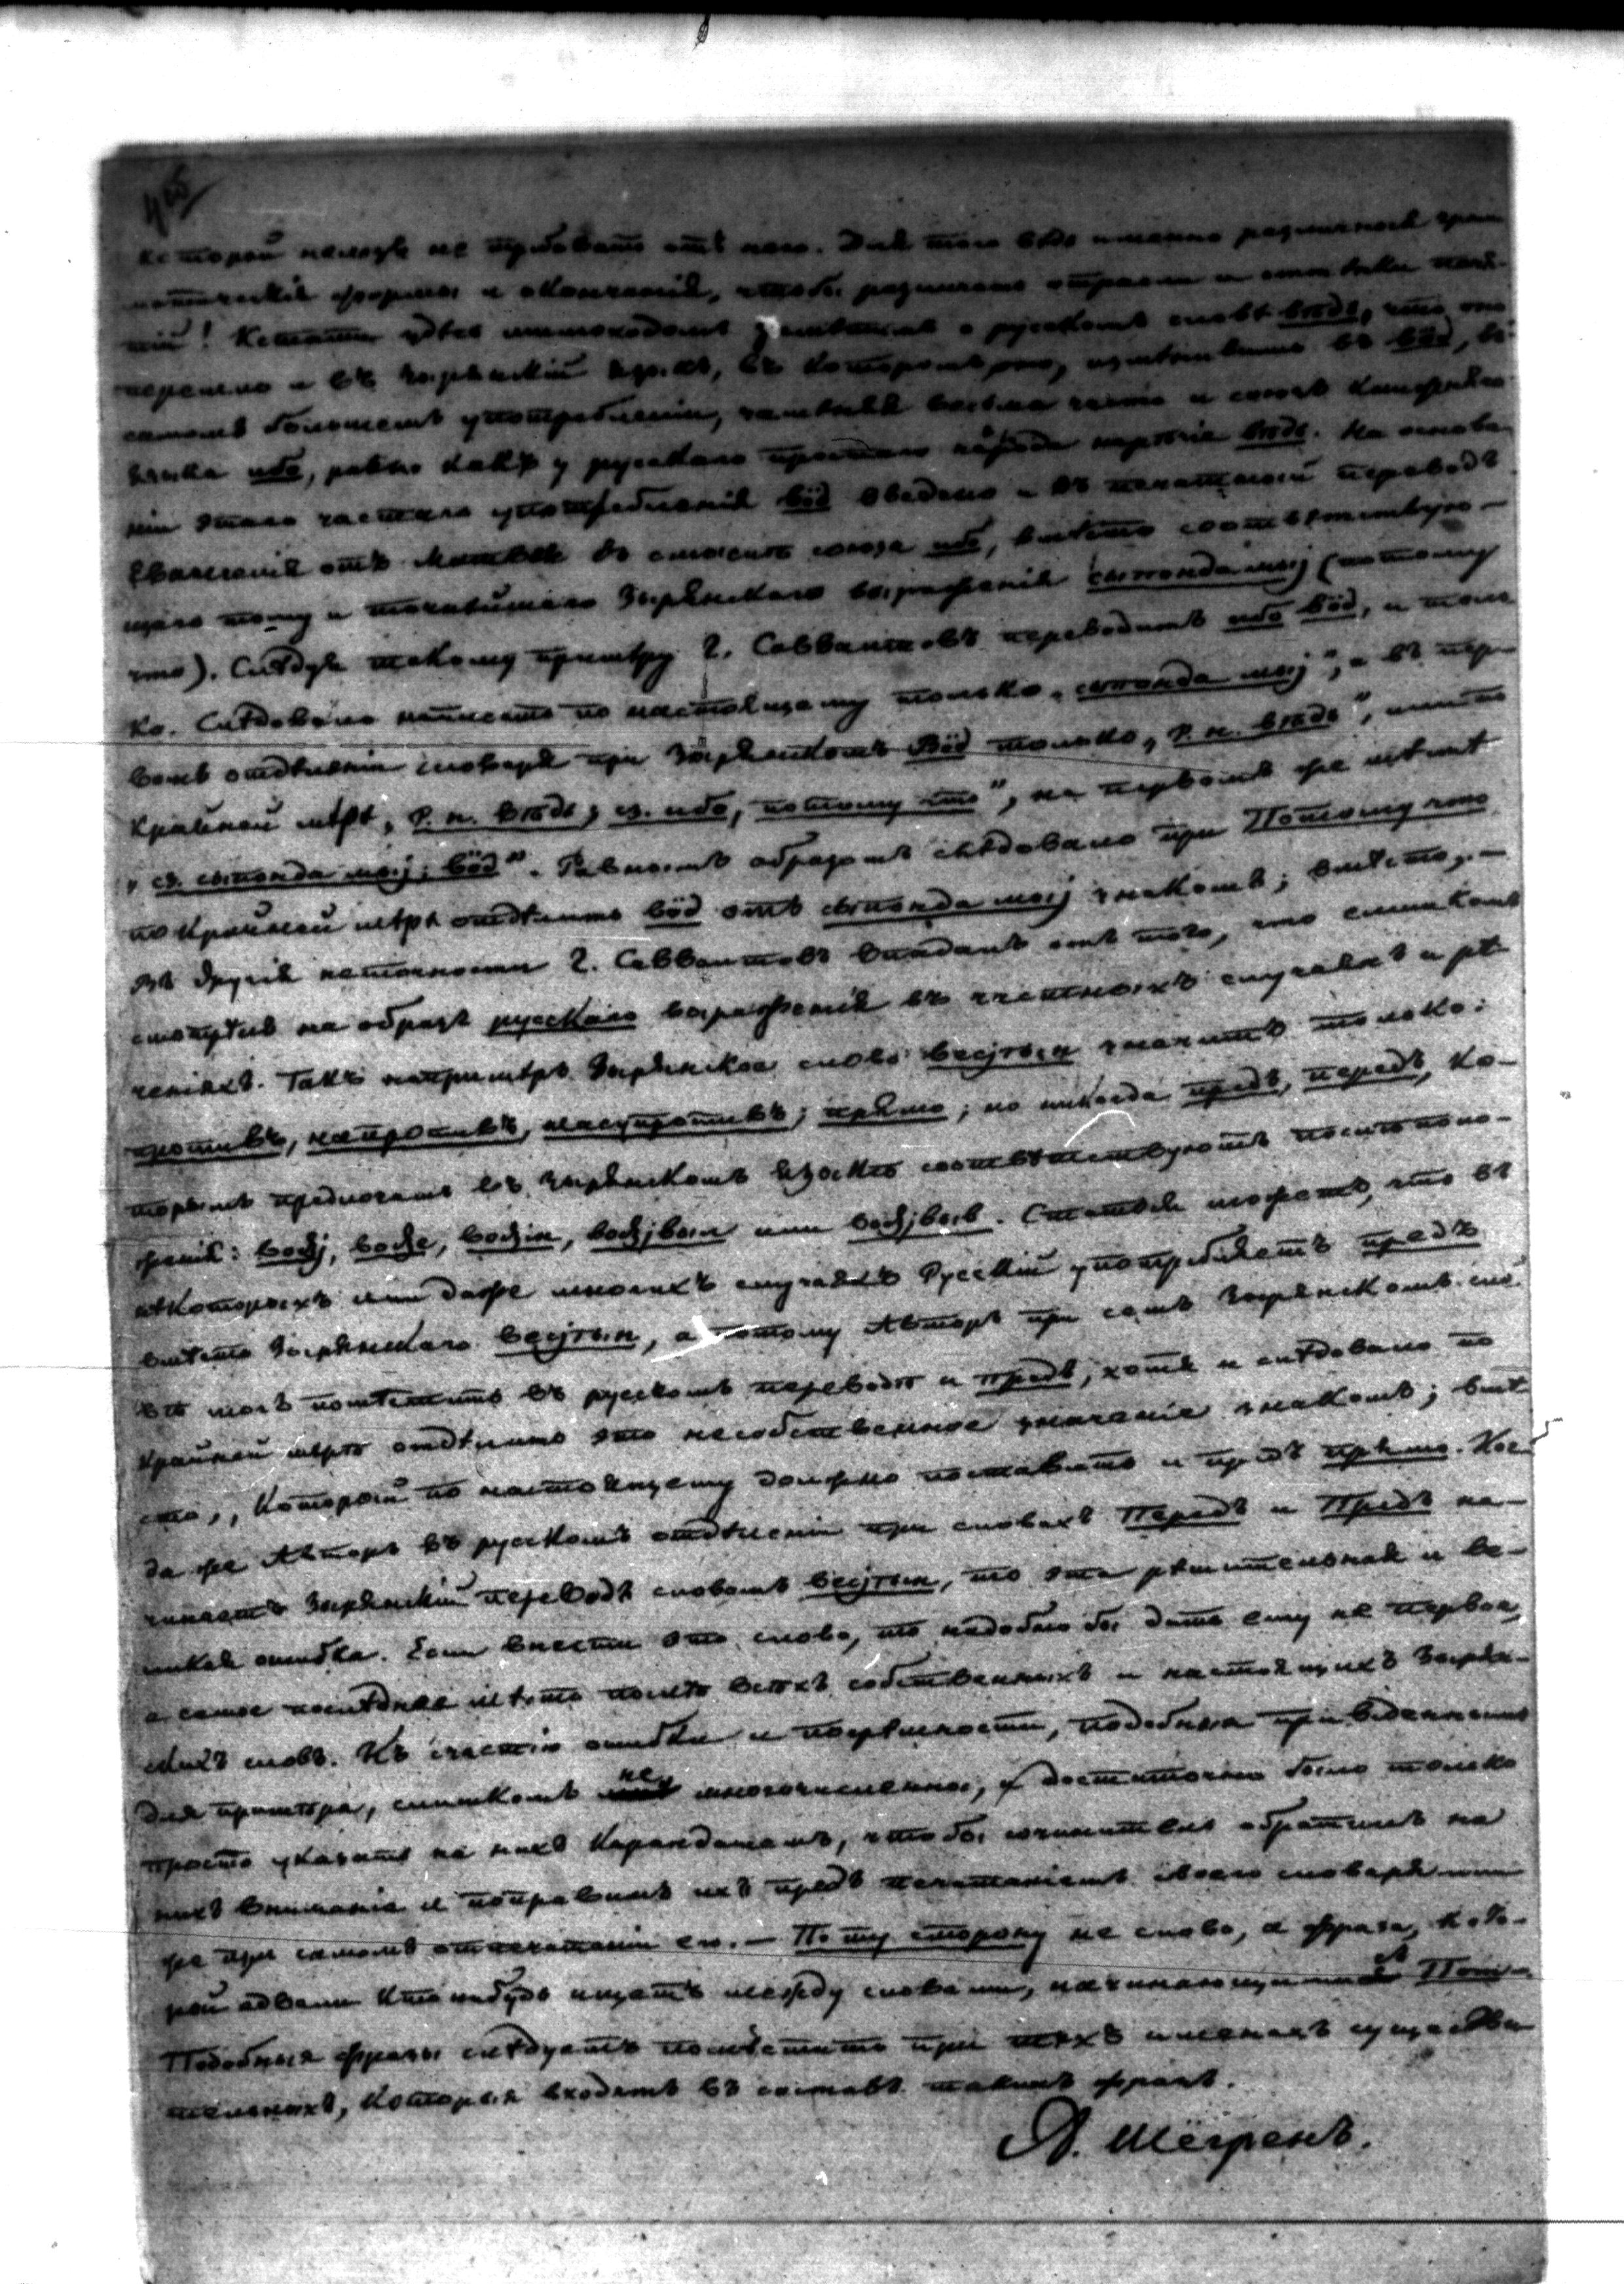 которой нельзя не требовать отъ него. Для того ведь именно различныя грам
матическія формы и окончанія, чтобы различать отрасли и оттѣнки поня-
тій! Кстати здѣсь мимоходомъ замѣтимъ о русскомъ словѣ вѣдь, что оно
перешло и въ Зырянскій языкъ, въ которомъ оно, измѣнившись въ вӧд, въ
самомъ большемъ употребленіи, замѣняя весьма часто и союзъ книжнаго
языка ибо, равно какъ у русскаго простаго народа нарѣчіе вѣдь. На основа
ніи этаго частаго употребленія вӧд введено и въ печатный переводъ
Евангелія отъ Матвѣя въ смыслѣ союза ибо, вмѣсто соотвѣтствую-
щаго тому и точнѣйшаго Зырянскаго выраженія сыпонда мыj (потому
что). Слѣдуя такому примѣру Г. Савваитовъ переводитъ ибо вӧд, и толь
ко. Слѣдовало написать по настоящему только „сыпонда мыj", а въ пер-
вомъ отдѣленіи словаря при Зырянскомъ Вӧд только „р. н. вѣдь",
крайней мѣрѣ, „р. н. вѣдь; сз. ибо, потому что", на первомъ же мѣстѣ
„сз. сыпонда мыj; вӧд". Равнымъ образомъ слѣдовало при Потому что
по крайней мѣрѣ отдѣлить вӧд отъ сыпонда мыj знакомъ; вмѣсто,. —
Въ другія неточности Г. Савваитовъ впадаетъ отъ того, что слишкомъ
смотрѣлъ на образъ русскаго выраженія въ частныхъ случаяхъ и рѣ
ченіяхъ. Такъ напримѣръ Зырянское слово весjтын значитъ только:
противъ, напротивъ, насупротивъ; прямо; но никогда предъ, передъ, ко-
торымъ предлогамъ въ Зырянскомъ языкѣ соотвѣтствуютъ послѣполо-
женія: воԫj, воԫе, воԫін, воԫjвын или воԫjвыв. Статься можетъ, что въ
нѣкоторыхъ или даже многихъ случаяхъ Русскій употребляетъ предъ
вмѣсто Зырянскаго весjтын, а потому Авторъ при семъ Зырянскомъ сло
вѣ могъ помѣстить въ русскомъ переводѣ и предъ, хотя и слѣдовало по
крайней мѣрѣ отдѣлить это несобственное значеніе знакомъ; вмѣ
сто,, который по настоящему должно поставить и предъ прямо. Ког
да же Авторъ въ русскомъ отдѣленіи при словахъ Передъ и Предъ на-
чинаетъ Зырянскій переводъ словомъ весjтын, то эта рѣшительная и ве-
ликая ошибка. Если внести это слово, то надобно бы дать ему не первое,
а самое послѣднее мѣсто послѣ всѣхъ собственныхъ и настоящихъ Зырян-
скихъ словъ. Къ счастію ошибки и погрѣшности, подобныя приведеннымъ
для примѣра, слишкомъ не многочисленны, и достаточно было только
просто указать на нихъ карандашемъ, чтобы сочинитель обратилъ на
нихъ вниманіе и поправилъ ихъ предъ печатаніемъ своего словаря или
же при самомъ отпечатаніи его. — По ту сторону не слово, а фраза, кото-
рой едвали кто нибудь ищетъ между словами, начинающимися
Подобныя фразы слѣдуетъ помѣстить при тѣхъ именахъ существи
тельныхъ, которыя входятъ въ составъ такихъ фразъ.
А. Шёгренъ.